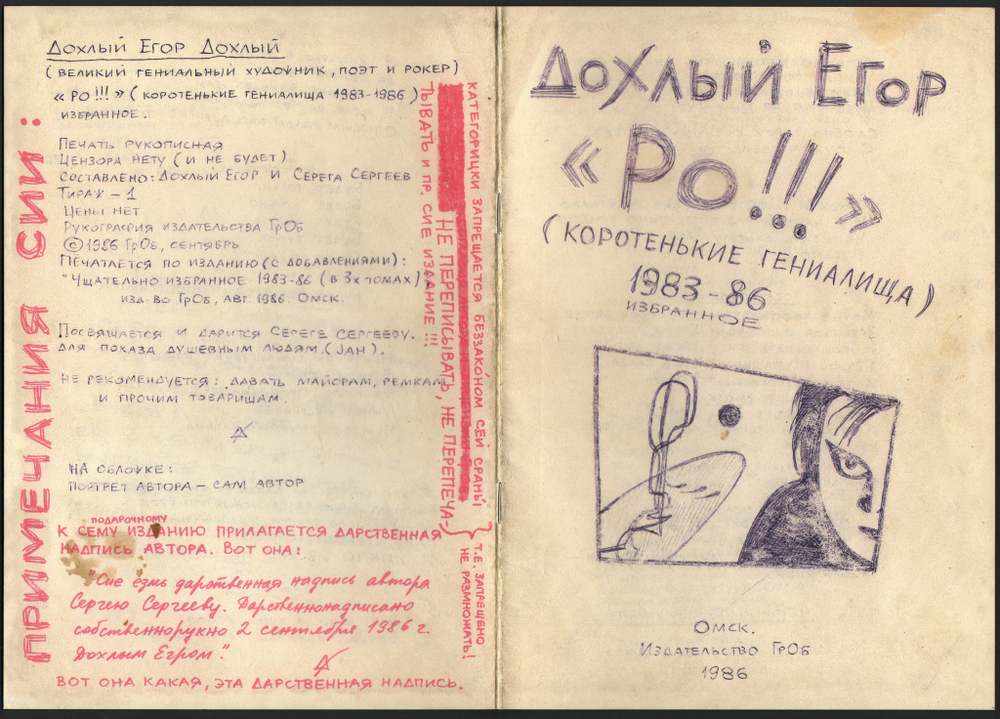 Дохлый Егор Дохлый
(великий гениальный худоуник, поэт и рокер)
«Ро!!!» (коротенькие гениалища 1983-1986)
избранное.
Печать рукописная
Цензора нету (и не будет)
Составлено: Дохлый Егор и Серега Сергеев
Тираж – 1
Цены нет
Рукография издательства ГрОб
©1986 ГрОб, сентябрь
Печатлется по изданию (с добавлениями):
"Чщательно избранное 1983-86 (в 3х томах)"
изд-во ГрОб, авг. 1986. Омск.
Посвящается и дарится Сереге Сергееву.
Для показа душевным людям. (Jah).
Не рекомендуется: давать майорам, ремкам
и прочим товарищам.
На облоуке:
портрет автора – сам автор
подарочному
К сему изданию прилагается дарственная
надпись автора. Вот она:
"Сие езмь дарственная надпись автора
Сергею Сергееву. Дарственнонадписано
собственнорукно 2 сентября 1986 г.
Дохлым Егром".
Вот она какая, эта дарственная надпись.
ПРИМЕЧАНИЯ СИИ:
КАТЕГОРИЦКИ ЗАПРЕЩАЕТСЯ БЕЗЗАКОНОМ СЕЙ СРАНЫ
НЕ ПЕРЕПИСЫВАТЬ, НЕ ПЕРЕПЕЧА-
ТЫВАТЬ И ПР. СИЕ ИЗДАНИЕ!!!
Т.Е. ЗАПРЕЩЕНО
НЕ РАЗМНОЖАТЬ!
ДОХЛЫЙ ЕГОР
«РО!!!»
(КОРОТЕНЬКИЕ ГЕНИАЛИЩА)
1983-86
ИЗБРАННОЕ
Омск.
Издательство ГрОб
1986